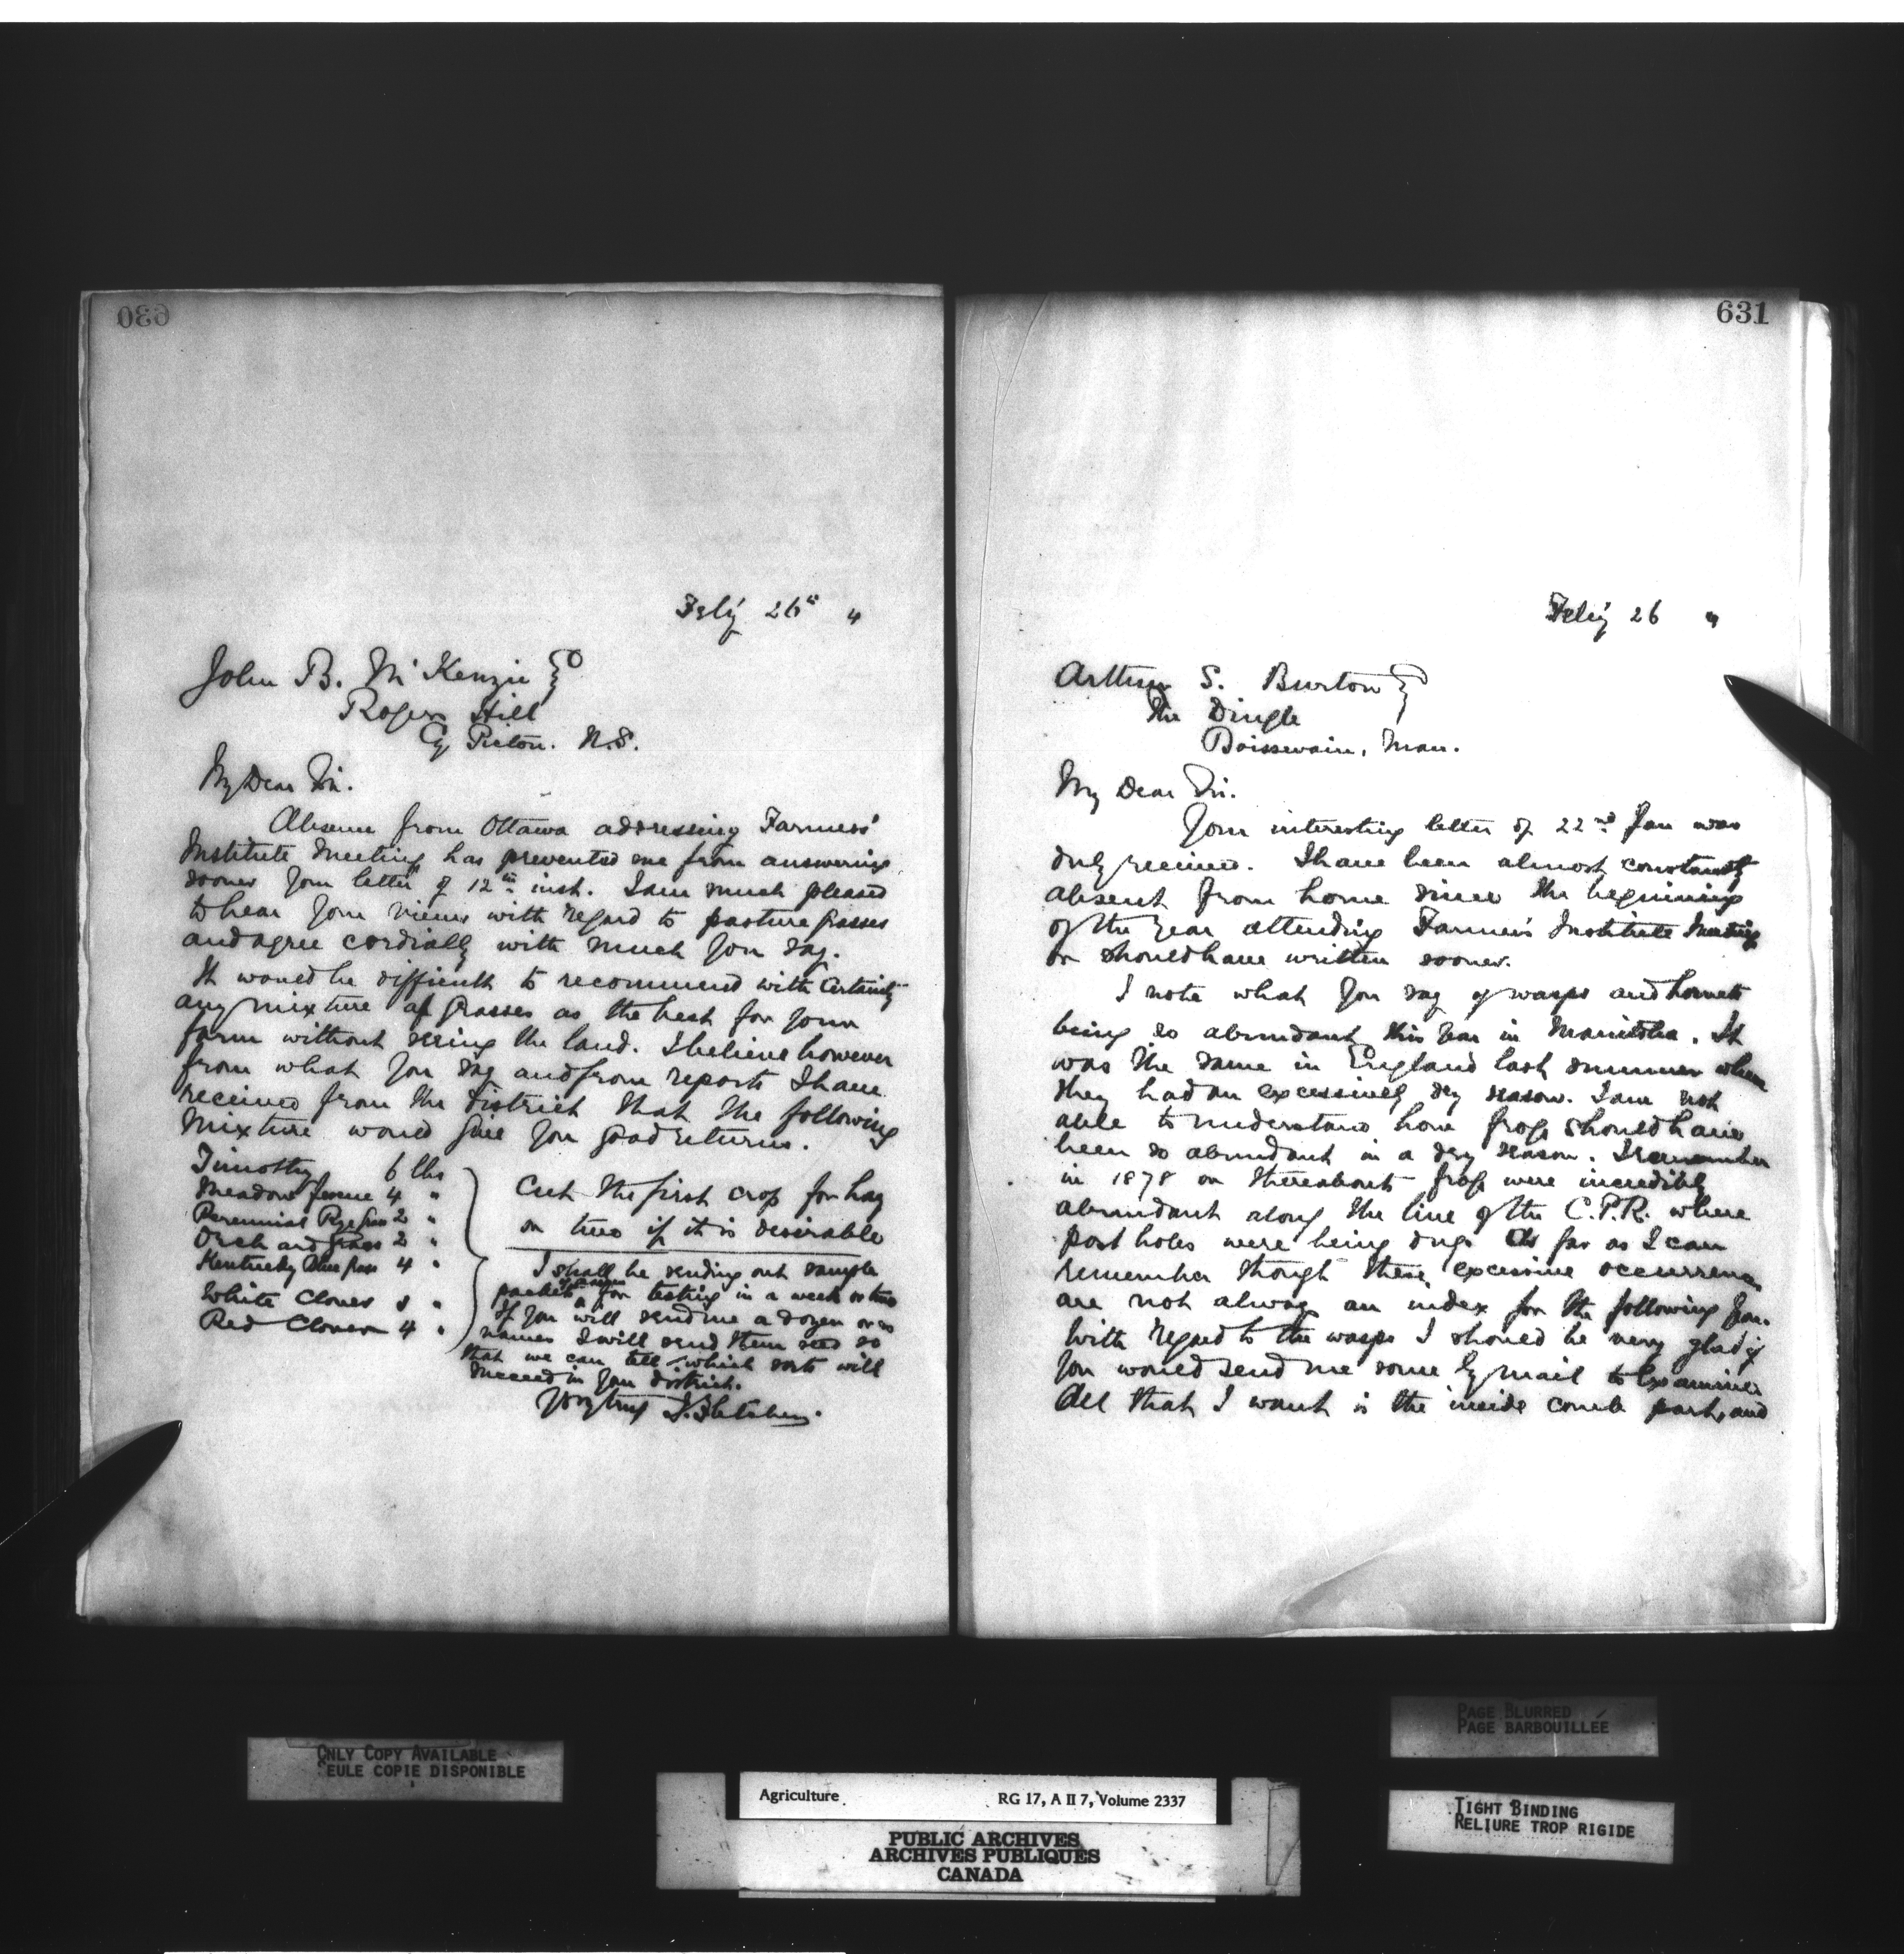 630
Feb'y 26th "
John B. McKenzie
Rogers Hill
Cy Pictou. N.S.
My Dear Sir.
Absence from Ottawa addressing Farmers'
Institute Meetings has prevented me from answering
sooner your letter of 12th inst. I am much pleased
to hear your views with regard to pasture grasses
and agree cordially with much you say.
It would be difficult to recommend with certainty
any mixture of grasses as the best for your
farm without seeing the land. I believe however
from what you say and from reports I have
received from the district that the following
mixture would give you good returns.
Timothy 6 lbs
Meadow fescue 4 "
Perennial Rye Grass 2 "
Orchard Grass 2 "
Kentucky Blue grass 4 "
White Clover "
Red Clover 4 "
Cut the first crop for hay
or two if it is desirable
I shall be sending out sample
packets of grasses for testing in a week or two
If you will send me a dozen or so
names I will send them seed so
that we can tell which sorts will
succeed in your district.
Yrs truly J. Fletcher.
631
Feb'y 26 "
Arthur S. Burton
The Dingle
Boissevain, Man.
My Dear Sir.
Your interesting letter of 22nd Jan was
duly received. I have been almost constantly
absent from home since the beginning
of the year attending Farmers Institute Meetings
or should have written sooner.
I note what you say of wasps and hornets
being so abundant this year in Manitoba. It
was the same in England last summer when
they had an excessively dry season. I am not
able to understand how frogs should have
been so abundant in a dry season. I remember
in 1878 or thereabouts frogs were incredibly
abundant along the line of the C.P.R. where
post holes were being dug. As far as I can
remember though these excessive occurrences
are not always an index for the following year.
With regard to the wasps I should be very glad if
you would send me some by mail to examine
All that I want is the inside comb part, and
ONLY COPY AVAILABLE
SEULE COPIE DISPONIBLE
PAGE BLURRED
PAGE BARBOUILLÉE
Agriculture RG 17, A II 7, Volume 2337
PUBLIC ARCHIVES
ARCHIVES PUBLIQUES
CANADA
TIGHT BINDING
RELIURE TROP RIGIDE